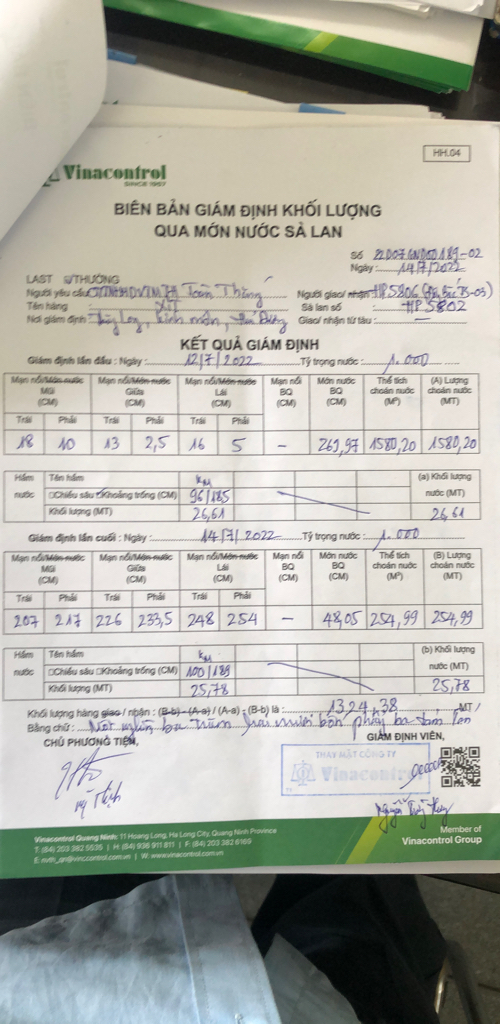 HH.04
Vinacontrol
SINCE 1957
BIÊN BẢN GIÁM ĐỊNH KHỐI LƯỢNG
QUA MỚN NƯỚC SÀ LAN
Số 22D07GND00189-02
Ngày: 14/7/2022
LAST THƯỜNG
Người yêu cầu Toàn Thắng Người giao/ nhận HP5806
Tên hàng XIT Sà lan số: HP5802
Nơi giám định Kinh môn, Hải Dương Giao/ nhận từ tàu: —
KẾT QUẢ GIÁM ĐỊNH
Giám định lần đầu : Ngày : 12/7/2022 Tỷ trọng nước : 1.000
Mạn nổi/Món nước Mũi (CM) Mạn nổi/Món nước Giữa (CM) Mạn nổi/Món nước Lái (CM) Mạn nổi BQ (CM) Món nước BQ (CM) Thể tích choán nước (M³) (A) Lượng choán nước (MT)
Trái Phải Trái Phải Trái Phải
18 10 13 2,5 16 5 — 269,97 1580,20 1580,20
Hầm nước Tên hầm KM (a) Khối lượng nước (MT)
□Chiều sâu □Khoảng trống (CM) 96/185
Khối lượng (MT) 26,61 26,61
Giám định lần cuối : Ngày : 14/7/2022 Tỷ trọng nước : 1.000
Mạn nổi/Món nước Mũi (CM) Mạn nổi/Món nước Giữa (CM) Mạn nổi/Món nước Lái (CM) Mạn nổi BQ (CM) Món nước BQ (CM) Thể tích choán nước (M³) (B) Lượng choán nước (MT)
Trái Phải Trái Phải Trái Phải
207 217 226 233,5 248 254 — 48,05 254,99 254,99
Hầm nước Tên hầm KM (b) Khối lượng nước (MT)
□Chiều sâu □Khoảng trống (CM) 100/189
Khối lượng (MT) 25,78 25,78
Khối lượng hàng giao / nhận : (B-b) - (A-a) / (A-a) - (B-b) là : 1324,38 MT/
Bằng chữ : Một nghìn ba trăm hai mươi bốn phẩy ba tám tấn
CHỦ PHƯƠNG TIỆN, GIÁM ĐỊNH VIÊN,
THAY MẶT CÔNG TY
Vinacontrol
Vinacontrol Quang Ninh: 11 Hoang Long, Ha Long City, Quang Ninh Province
T: (84) 203 382 5535 | H: (84) 936 911 811 | F: (84) 203 382 6169
W: www.vinacontrol.com.vn
Member of
Vinacontrol Group